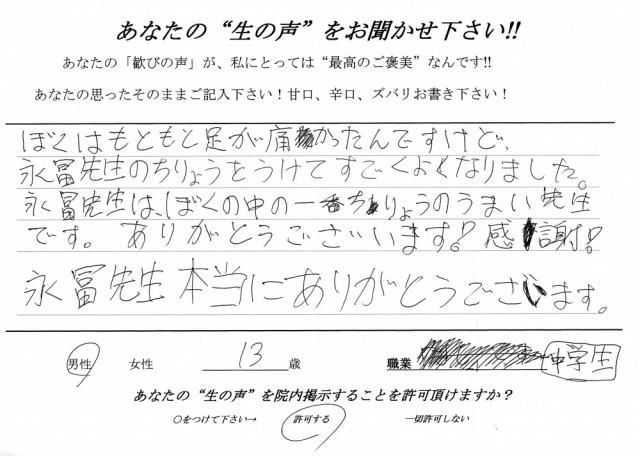 あなたの“生の声”をお聞かせ下さい!!
あなたの「歓びの声」が、私にとっては“最高のご褒美”なんです!!
あなたの思ったそのままご記入下さい！甘口、辛口、ズバリお書き下さい！
ぼくはもともと足が痛かったんですけど、
永冨先生のちりょうをうけてすごくよくなりました。
永冨先生は、ぼくの中の一番ちりょうのうまい先生
です。ありがとうございます！感謝！
永冨先生本当にありがとうございます。
男性 女性 13 歳 職業 中学生
あなたの“生の声”を院内掲示することを許可頂けますか？
○をつけて下さい→ 許可する 一切許可しない